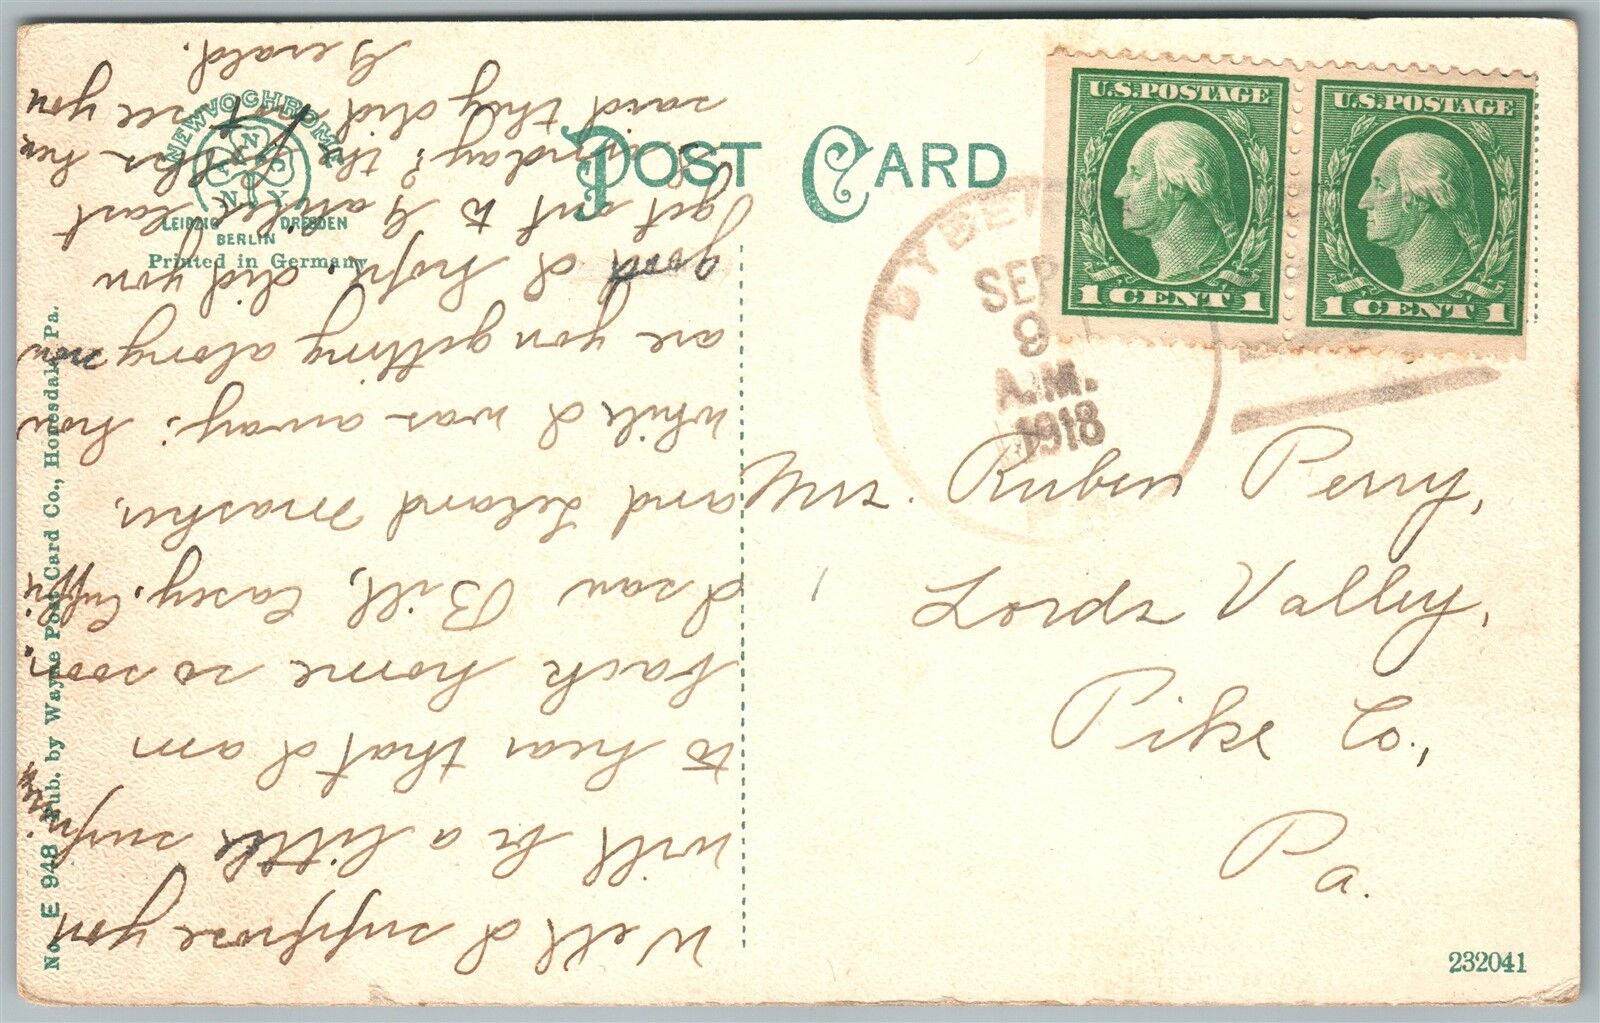 POST CARD
NEWVOCHROME
LEIPZIG DRESDEN
BERLIN
Printed in Germany
No. E 948 Pub. by Wayne Post Card Co., Honesdale, Pa.
U.S. POSTAGE
1 CENT 1
U.S. POSTAGE
1 CENT 1
SEP
9
A.M.
1918
Perry,
Lords Valley,
Pike Co.,
Pa.
232041
Well I suppose you
will be a little surprised
to hear that I am
back home so soon.
I saw Bill, Casey,
and Leland
while I was away; how
are you getting along now
good I hope. did you
get out to last
Saturday? the
said they did not see you
Gerald.